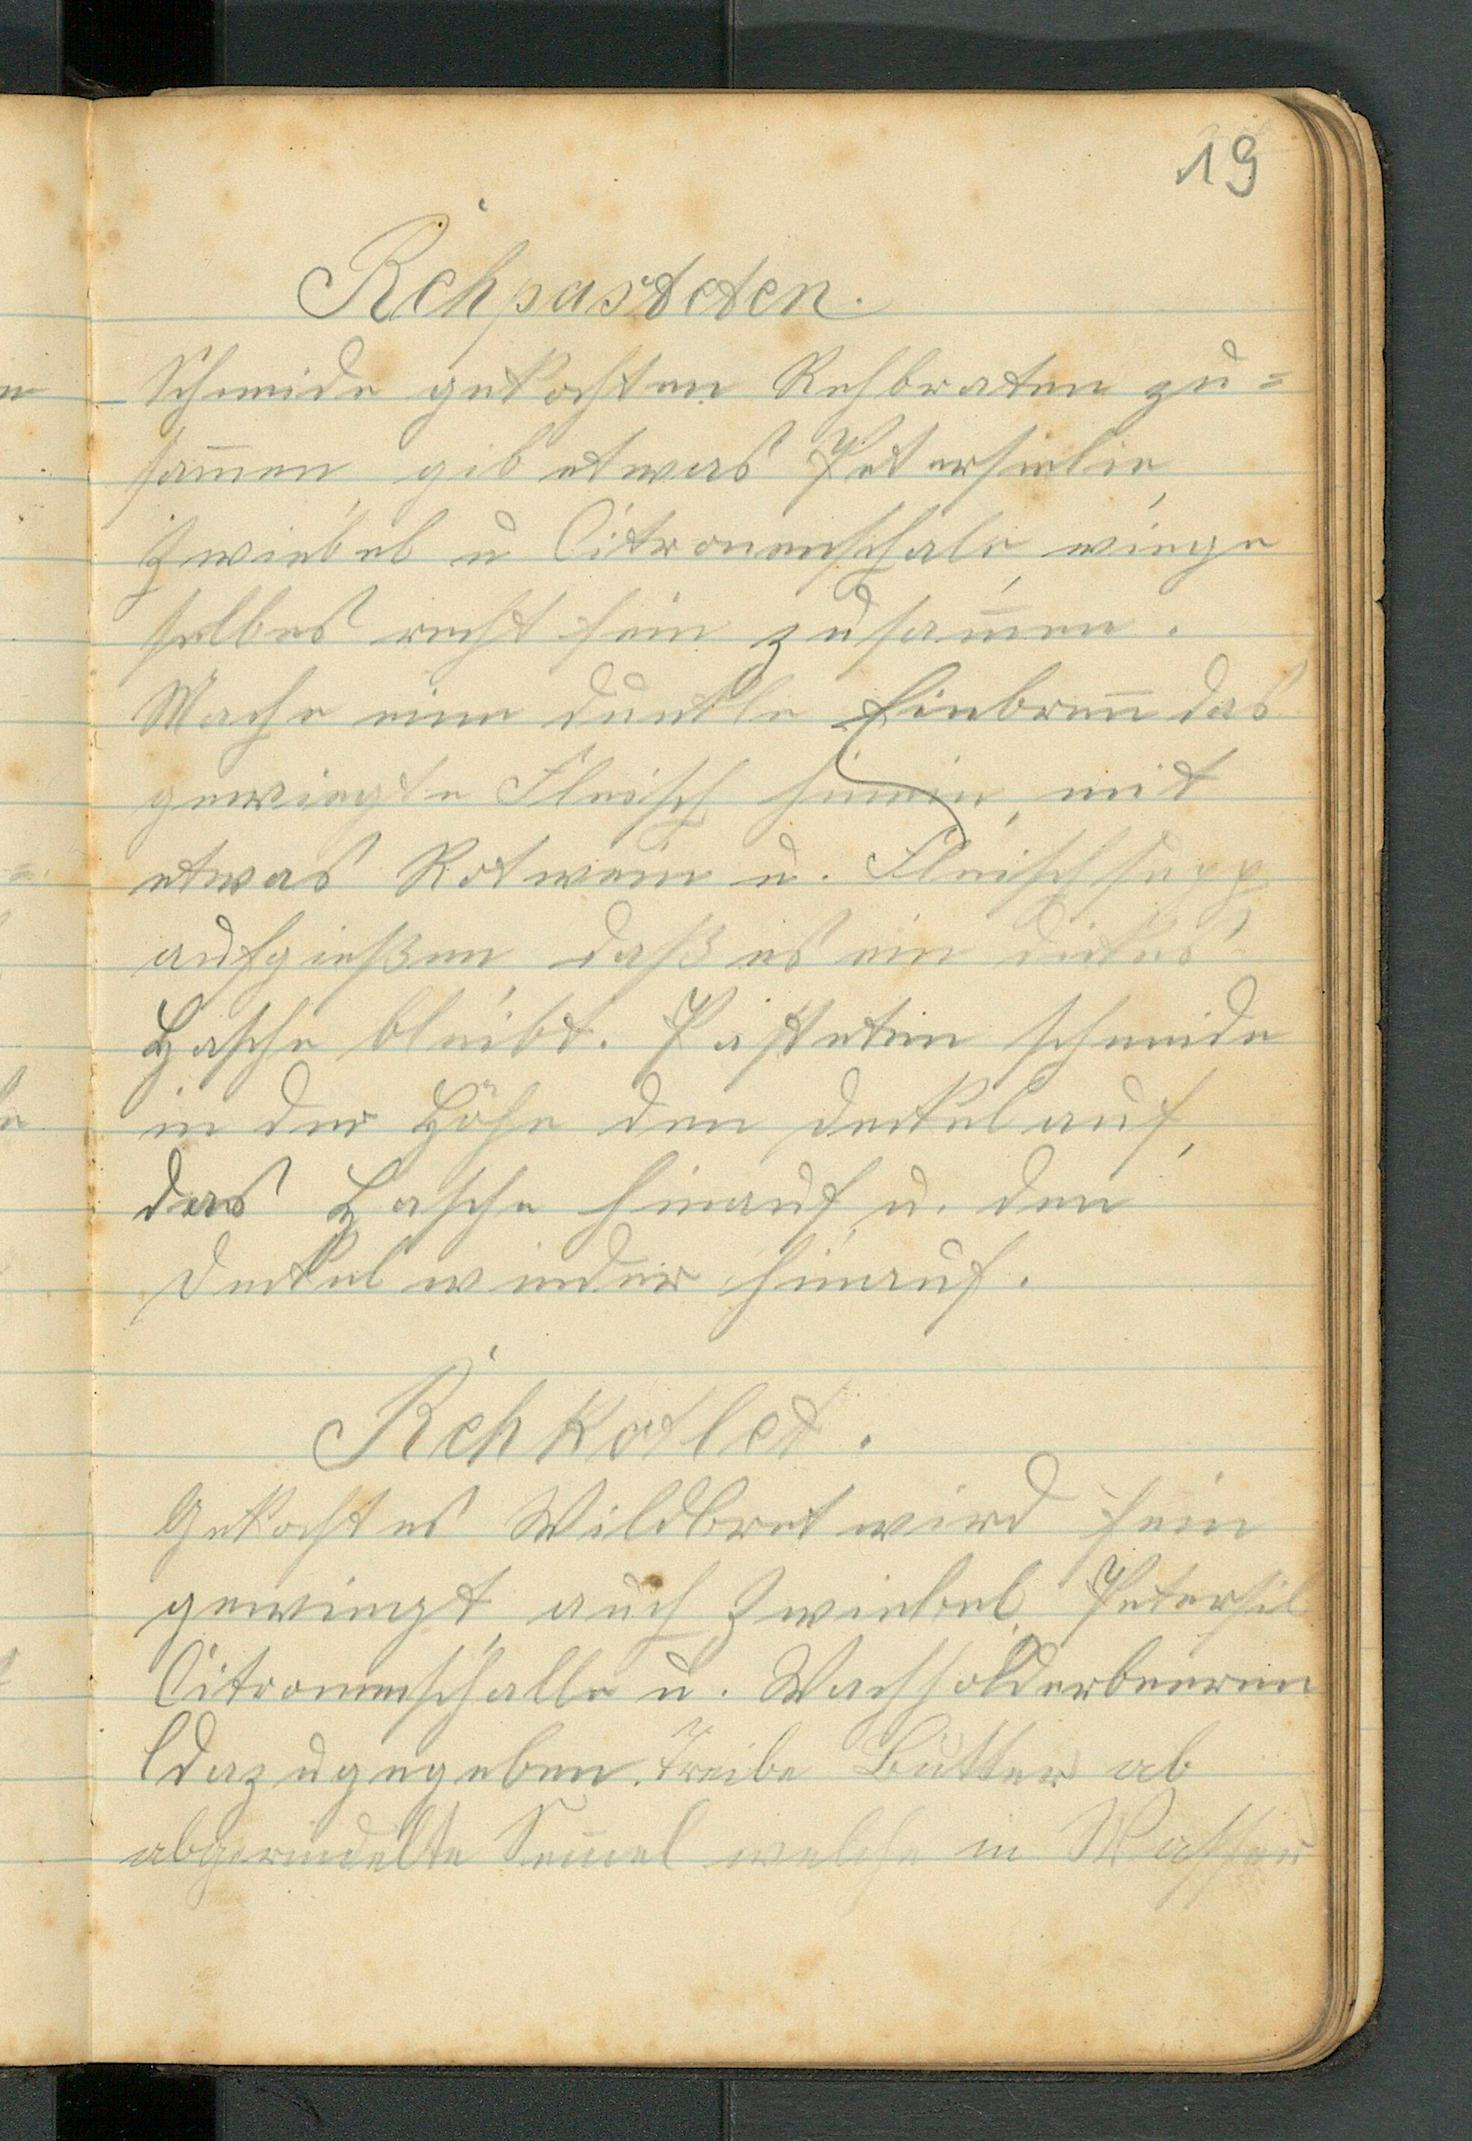 19
Rehpasteten.
Schneide gekochten Rehbraten zu=
sam̅en, gib etwas Petersielie,
Zwiebel u Citronenschale, wiege
selbes recht fein zusam̅en.
Mache eine dunkle Einbren̅ das
gewiegte Fleisch hinein, mit
etwas Rotwein u. Fleischsupp
aufgießen daß es ein dickes
Hasche bleibt. Pasteten schneide
in der Höhe den Deckel auf,
das Hasche hinauf u. den
Deckel wieder hinauf.
Rehkotlet.
Gekochtes Wildbret wird fein
gewiegt, auch Zwiebel, Petersil
Citronenschalle u. Wachholderbeeren
dazugegeben. Treibe Butter ab
abgerindelte Sem̅el welche in Wasser